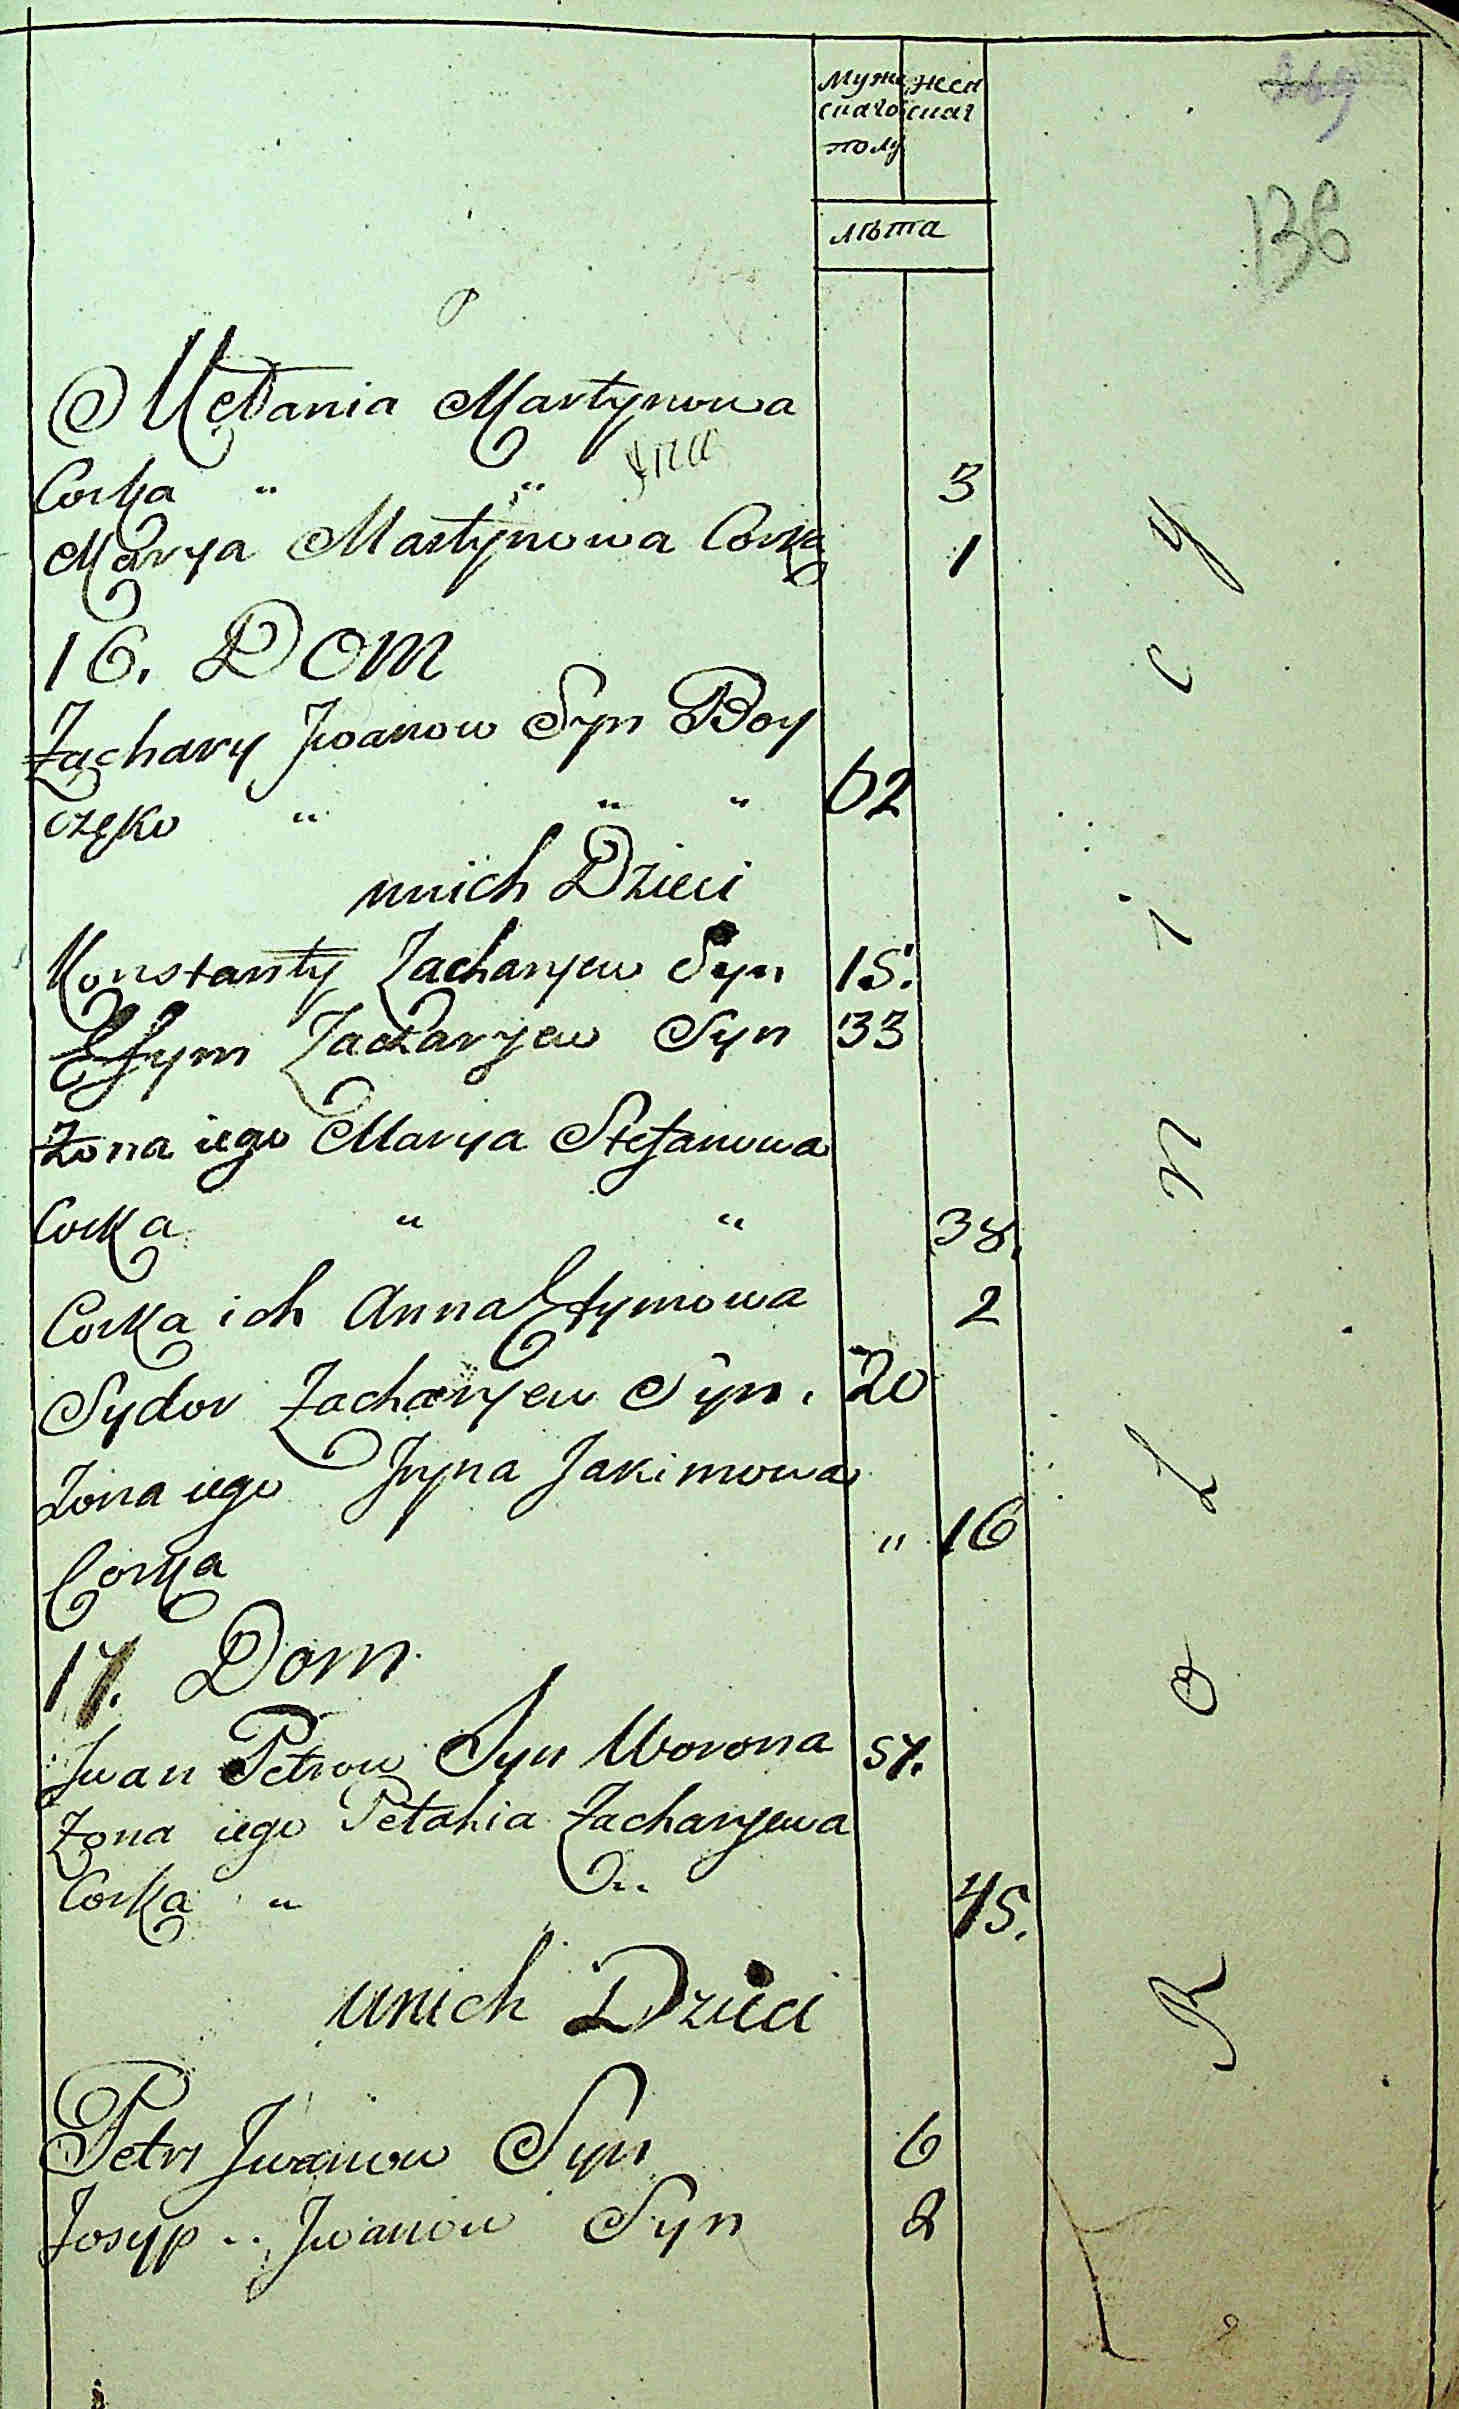 Муже Жен
скаго скаг
полу
лѣта
269
136
Mełania Martynowa
Corka " " 3
Marya Martynowa Corka 1
16. Dom
Zachary Jwanow Syn Boy
częko " " " 62
unich Dzieci
Konstanty Zacharyew Syn 15.
Efym Zacharyew Syn 33
Żona iego Marya Stefanowa
Corka " " 38.
Corka ich Anna Efymowa 2
Sydor Zacharyew Syn. 20
Żona iego Jryna Jakimowa
Corka " 16
17. Dom
Jwan Petrow Syn Worona 57.
Żona iego Pełahia Zacharyewa
Corka " " 45.
unich Dzieci
Petr Jwanow Syn 6
Josyp .. Jwanow Syn 2
Rolnicy